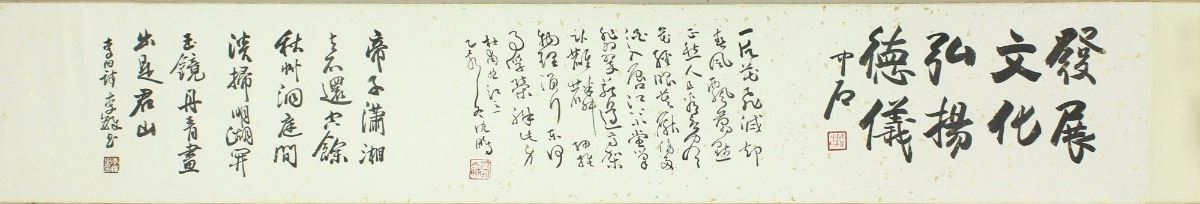 發展
文化
弘揚
德儀
中石
一片花飛減却
春風飄萬點
正愁人且看欲盡
花經眼莫厭傷多
酒入唇江上小堂
翡翠苑邊高冢
卧麒麟細推
物理須行樂何
用浮榮絆此身
杜甫曲江
乙亥
帝子瀟湘
去不還空餘
秋艸洞庭間
淡掃明湖開
玉鏡丹青畫
出是君山
李白詩